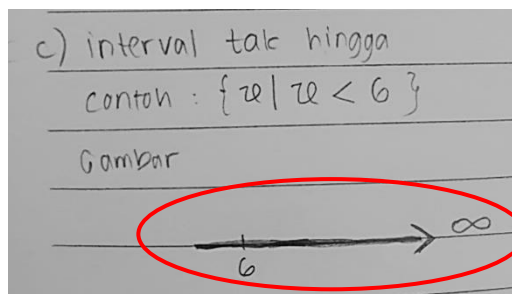 c) interval tak hingga
contoh : {x | x < 6 }
Gambar
∞
6